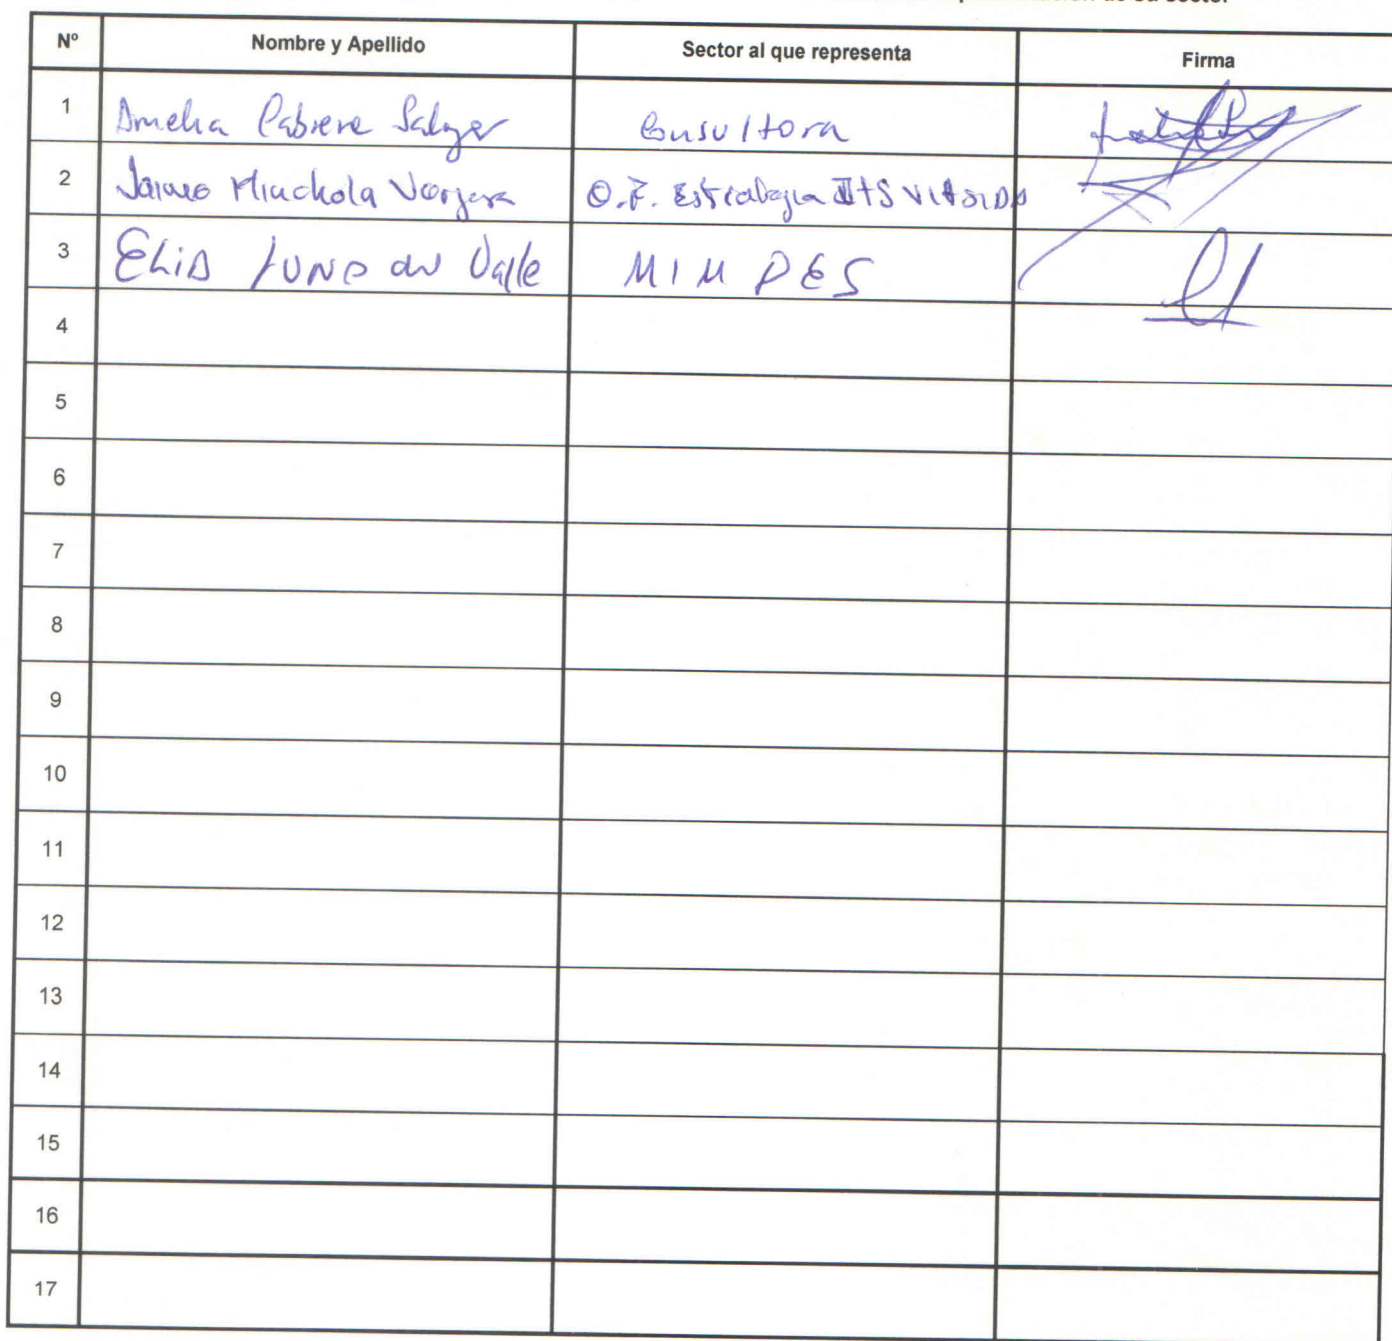 Nº Nombre y Apellido Sector al que representa Firma
1 Amelia Cabrera Consultora
2 Jaime Minchola Vergara O.F. Estrategia ITS VIH SIDA
3 ELiA LUNA del Valle MIMDES
4
5
6
7
8
9
10
11
12
13
14
15
16
17